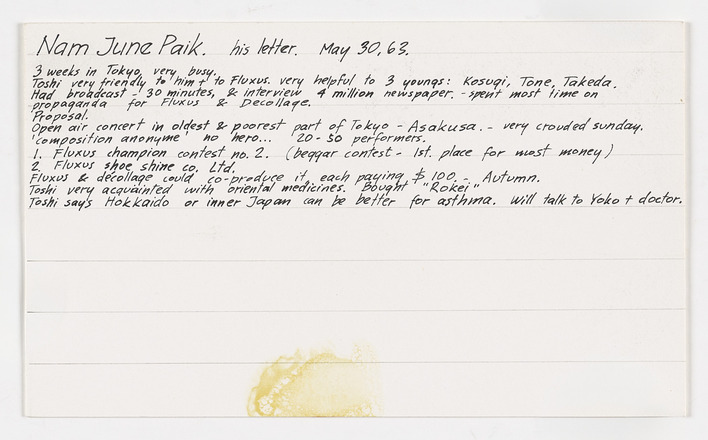 Nam June Paik. his letter. May 30, 63.
3 weeks in Tokyo, very busy.
Toshi very friendly to him + to Fluxus. very helpful to 3 youngs: Kosugi, Tone, Takeda.
Had broadcast - 30 minutes, & interview 4 million newspaper. - spent most time on
propaganda for Fluxus & Decollage.
Proposal.
Open air concert in oldest & poorest part of Tokyo - Asakusa. - very crouded sunday.
'composition anonyme' no hero... 20-50 performers.
1. Fluxus champion contest no. 2. (beggar contest - 1st. place for most money)
2. Fluxus shoe shine co. Ltd.
Fluxus & decollage could co-produce it, each paying $ 100. - Autumn.
Toshi very acquainted with oriental medicines. Bought "Rokei"
Toshi says Hokkaido or inner Japan can be better for asthma. Will talk to Yoko + doctor.